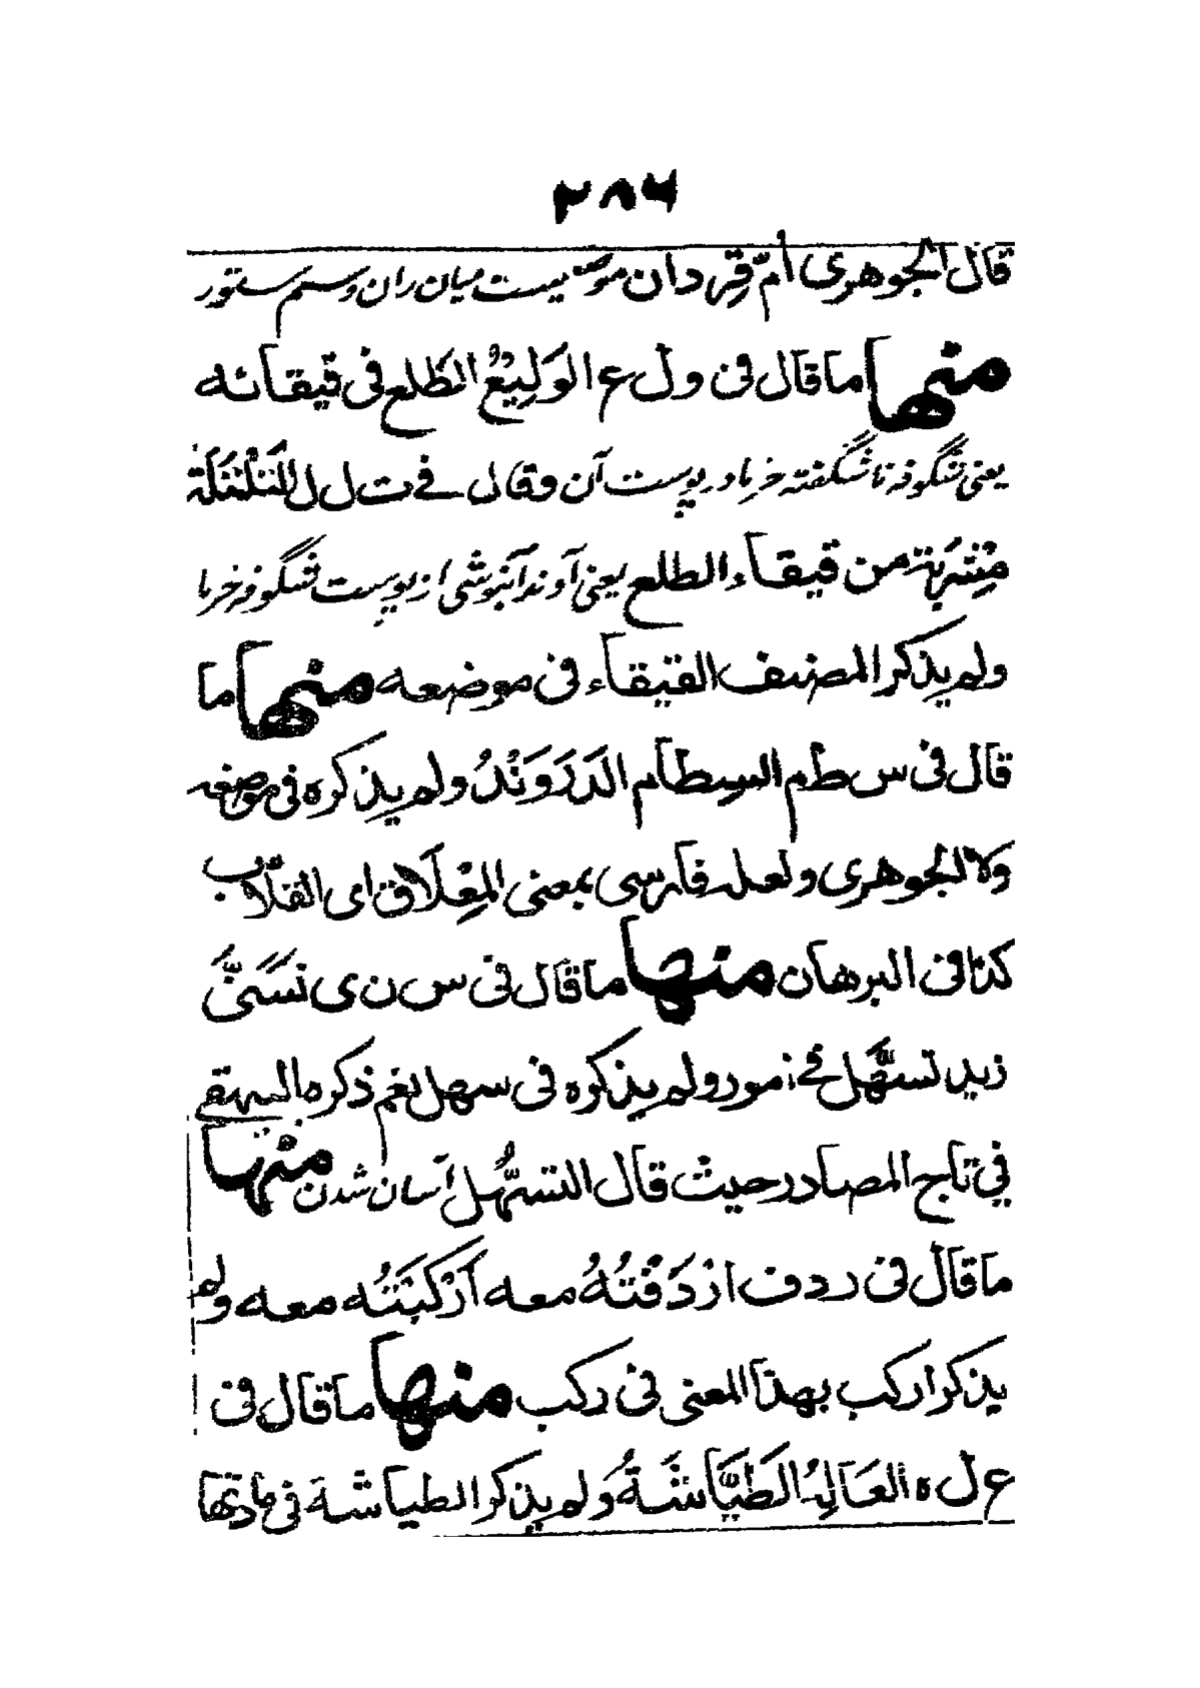 ٢٨٦
قال الجوهرى أمّ قِردان موضعیست میان ران وسم ستور
منها ما قال فى ول ع الوَلِيعُ الطَلع فى قيقائه
یعنی شگوفه ناشگفته خرما در پوست آن وقال فے ت ل ل التَلْتَلَة
مِشْرَبة من قيقاء الطلع یعنی آوند آبنوشی از پوست شگوفه خرما
ولم يذكر المصنف القيقاء فى موضعه منها ما
قال فى س ط م السِطَام الدَرَوَنْدُ ولم يذكره فى موضعه
ولا الجوهرى ولعله فارسى بمعنى المِعْلَاق اى القلّاب
كذا فى البرهان منها ما قال فى س ن ى تَسَنَّى
زيد تسهَّل فے امور ولم يذكره فى سهل نعم ذكره البيهقے
في تاج المصادر حيث قال التسهُّل آسان شدن منها
ما قال فى ردف اردَفْتُهُ معه اَرْكَبْتُه معه ولم
يذكر اركب بهذا المعنى فى ركب منها ما قال فى
ع ل ه العَالِهُ الطَيَّاشَةُ ولم يذكر الطياشة فى مادتها